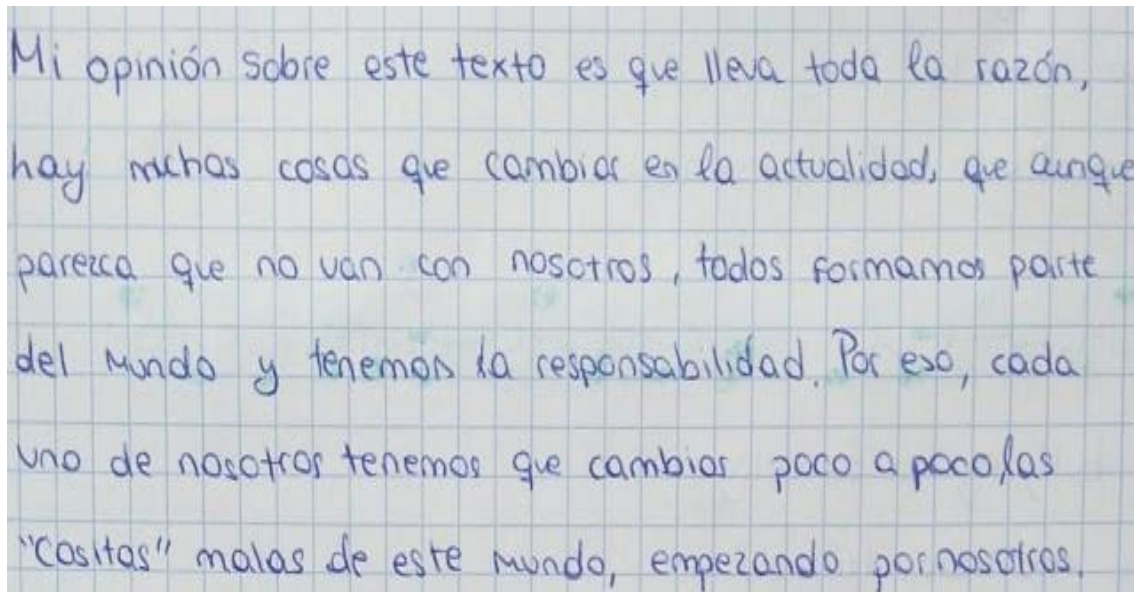 Mi opinión sobre este texto es que lleva toda la razón,
hay muchas cosas que cambiar en la actualidad, que aunque
parezca que no van con nosotros, todos formamos parte
del mundo y tenemos la responsabilidad. Por eso, cada
uno de nosotros tenemos que cambiar poco a poco las
"cositas" malas de este mundo, empezando por nosotros.